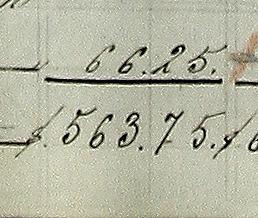 66.25.
$.563.75.$6